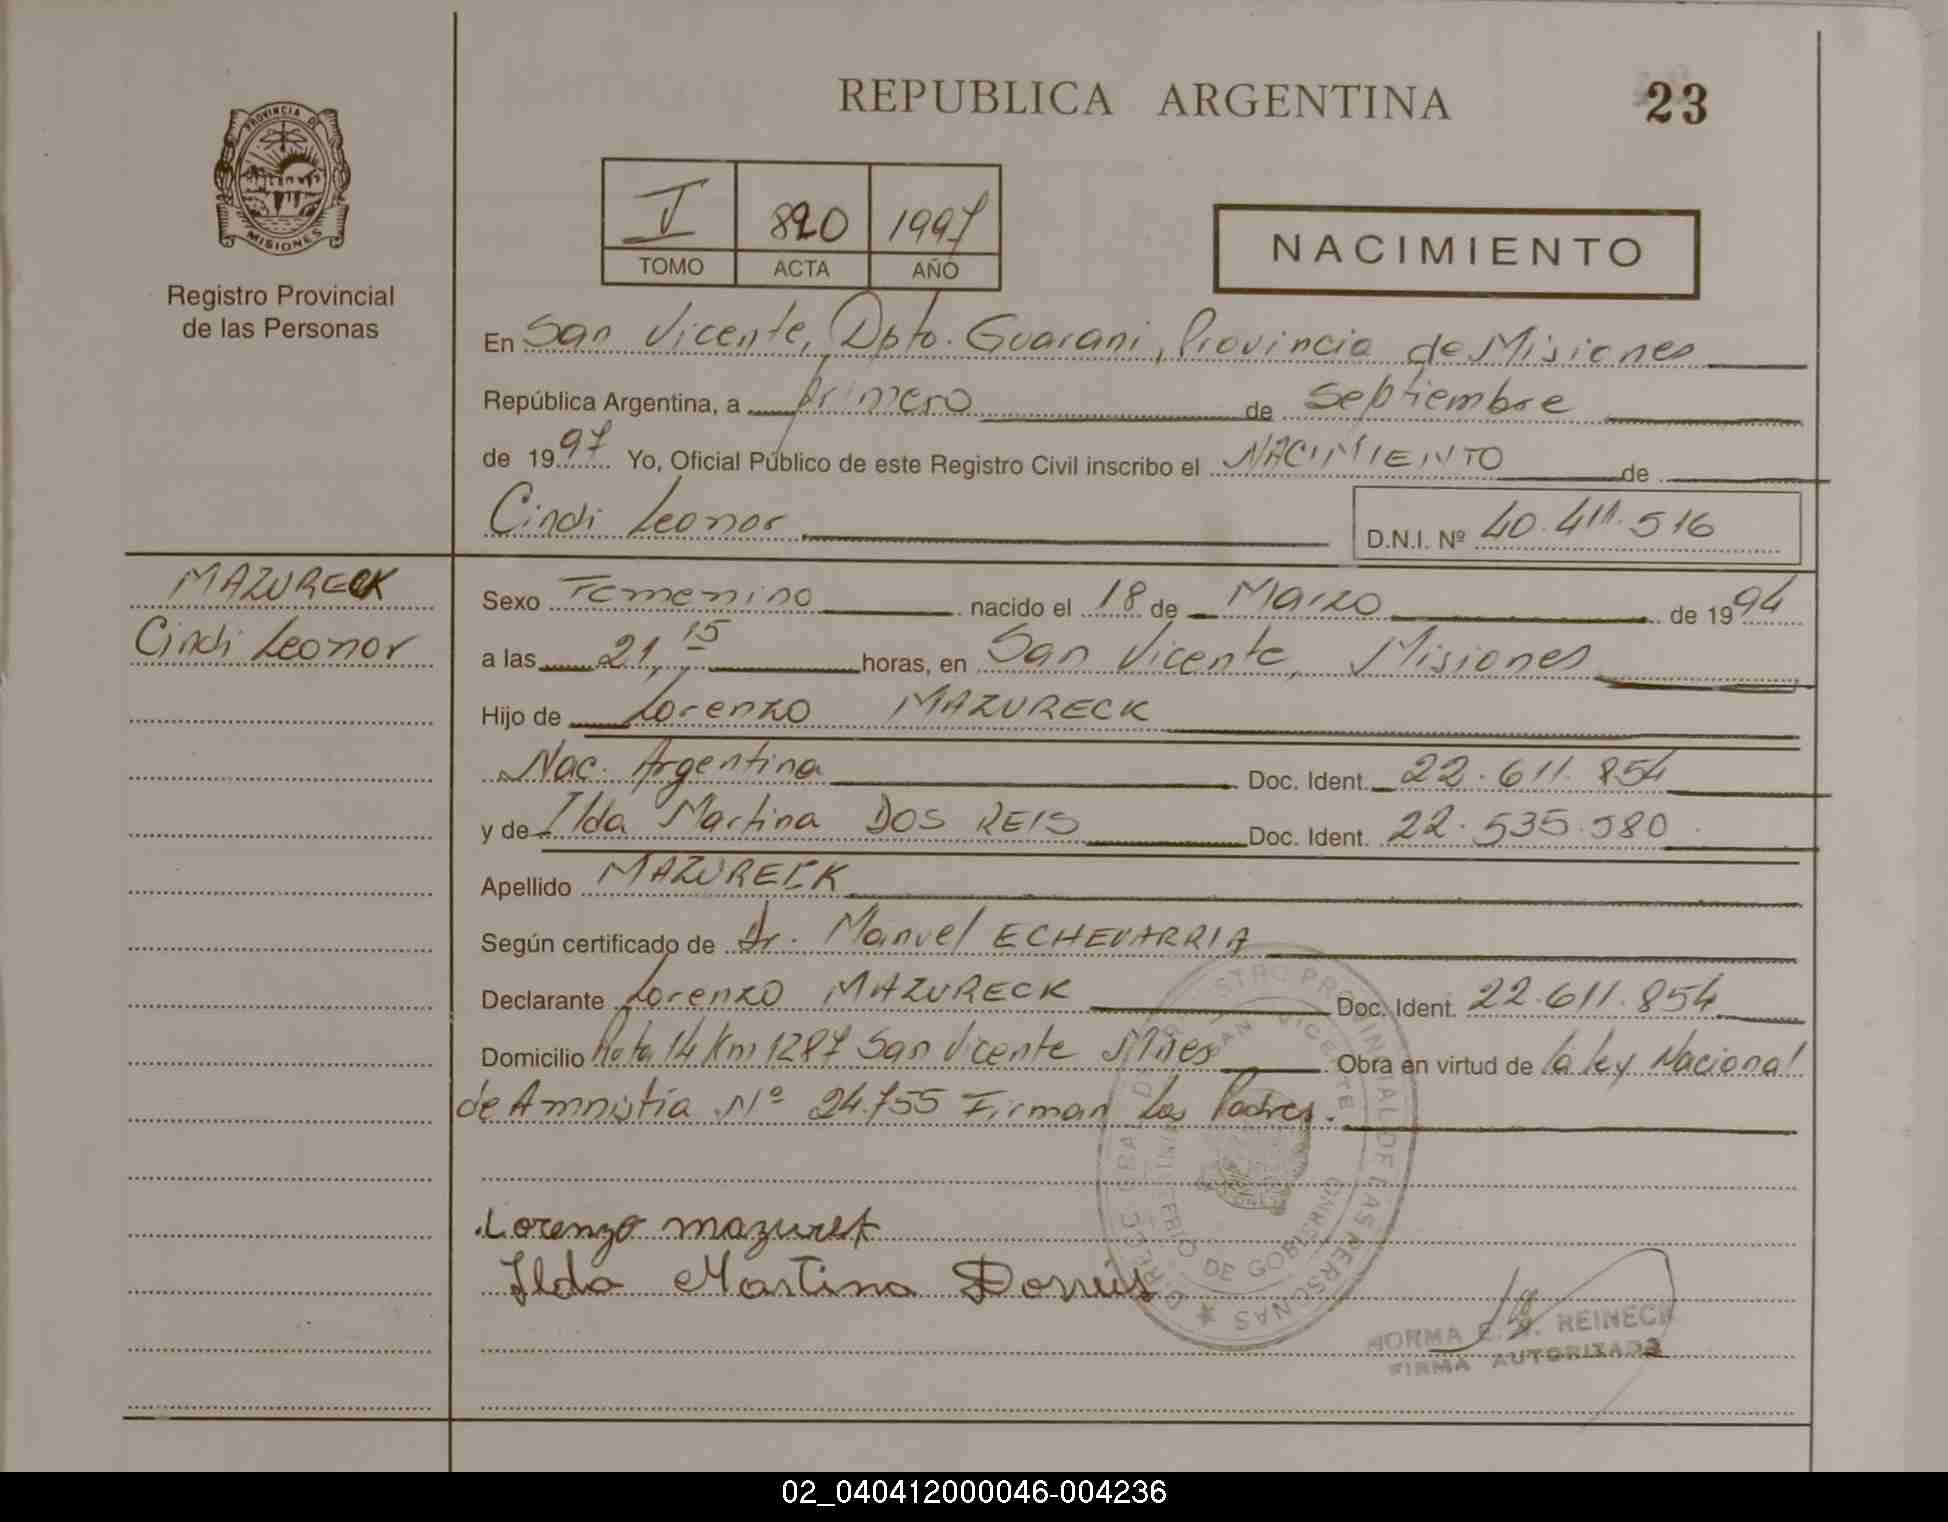 REPUBLICA ARGENTINA
23
PROVINCIA DE
MISIONES
Registro Provincial
de las Personas
I 820 1997
TOMO ACTA AÑO
NACIMIENTO
En San Vicente, Dpto. Guarani, Provincia de Misiones
República Argentina, a primero de Septiembre
de 1997 Yo, Oficial Público de este Registro Civil inscribo el NACIMIENTO de
Cindi Leonor
D.N.I. Nº 40.411.516
MAZURECK
Cindi Leonor
Sexo Femenino nacido el 18 de Marzo de 1994
a las 21,15 horas, en San Vicente, Misiones
Hijo de Lorenzo MAZURECK
Nac. Argentina Doc. Ident. 22.611.854
y de Ilda Martina DOS REIS Doc. Ident. 22.535.580
Apellido MAZURECK
Según certificado de Dr. Manuel ECHEVARRIA
Declarante Lorenzo MAZURECK Doc. Ident. 22.611.854
Domicilio Ruta 14 Km 1287 San Vicente Mnes Obra en virtud de la ley Nacional
de Amnistia Nº 24.755 Firman los Padres.
Lorenzo mazurek
Ilda Martina
SAN VICENTE
DE GOBIERNO
DE LAS PERSONAS
NORMA REINECK
FIRMA AUTORIZADA
02_040412000046-004236